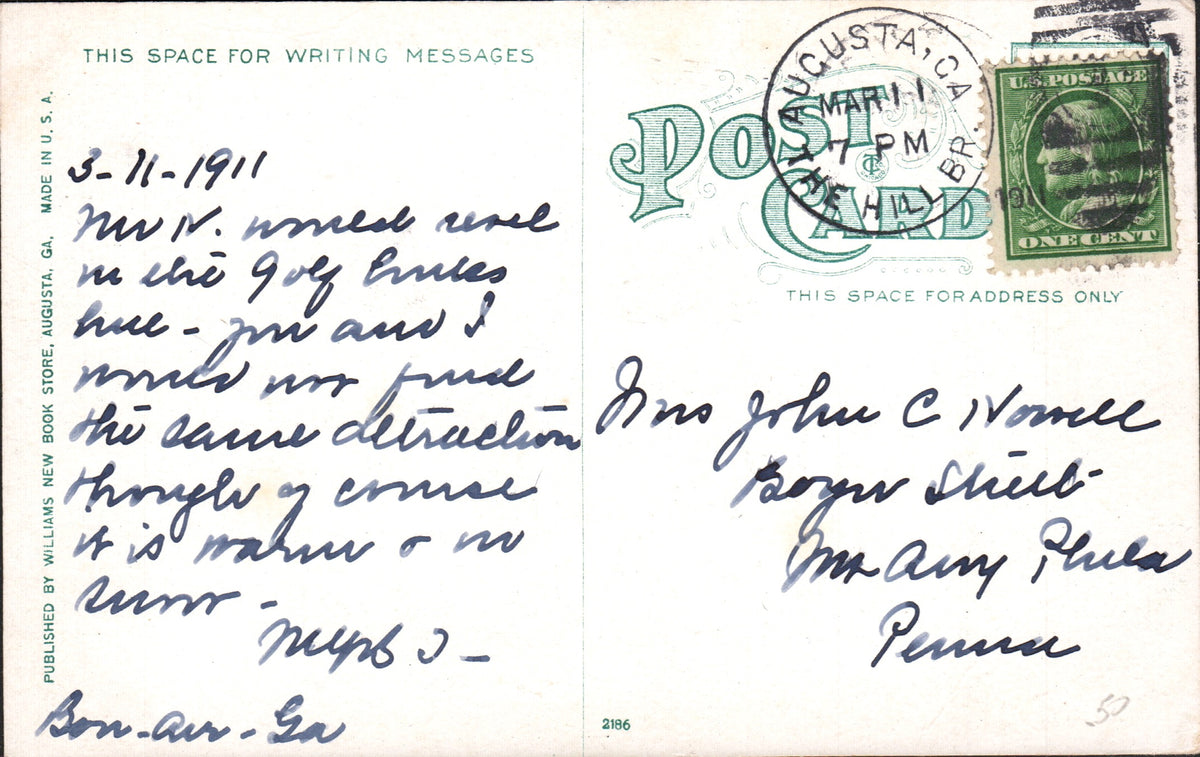 THIS SPACE FOR WRITING MESSAGES
PUBLISHED BY WILLIAMS NEW BOOK STORE, AUGUSTA, GA. MADE IN U. S. A.
3-11-1911
Mr N. would revel
in the Golf links
here - you and I
would not find
the same attraction
though of course
it is warm & no
snow -
Bon-Air - Ga
POST CARD
AUGUSTA, GA.
MAR 11
7 PM
THE HILL BR.
U.S. POSTAGE
ONE CENT
THIS SPACE FOR ADDRESS ONLY
Mrs John C Nowell
Boyer Street
Mt Airy Phila
Penna
2186
50